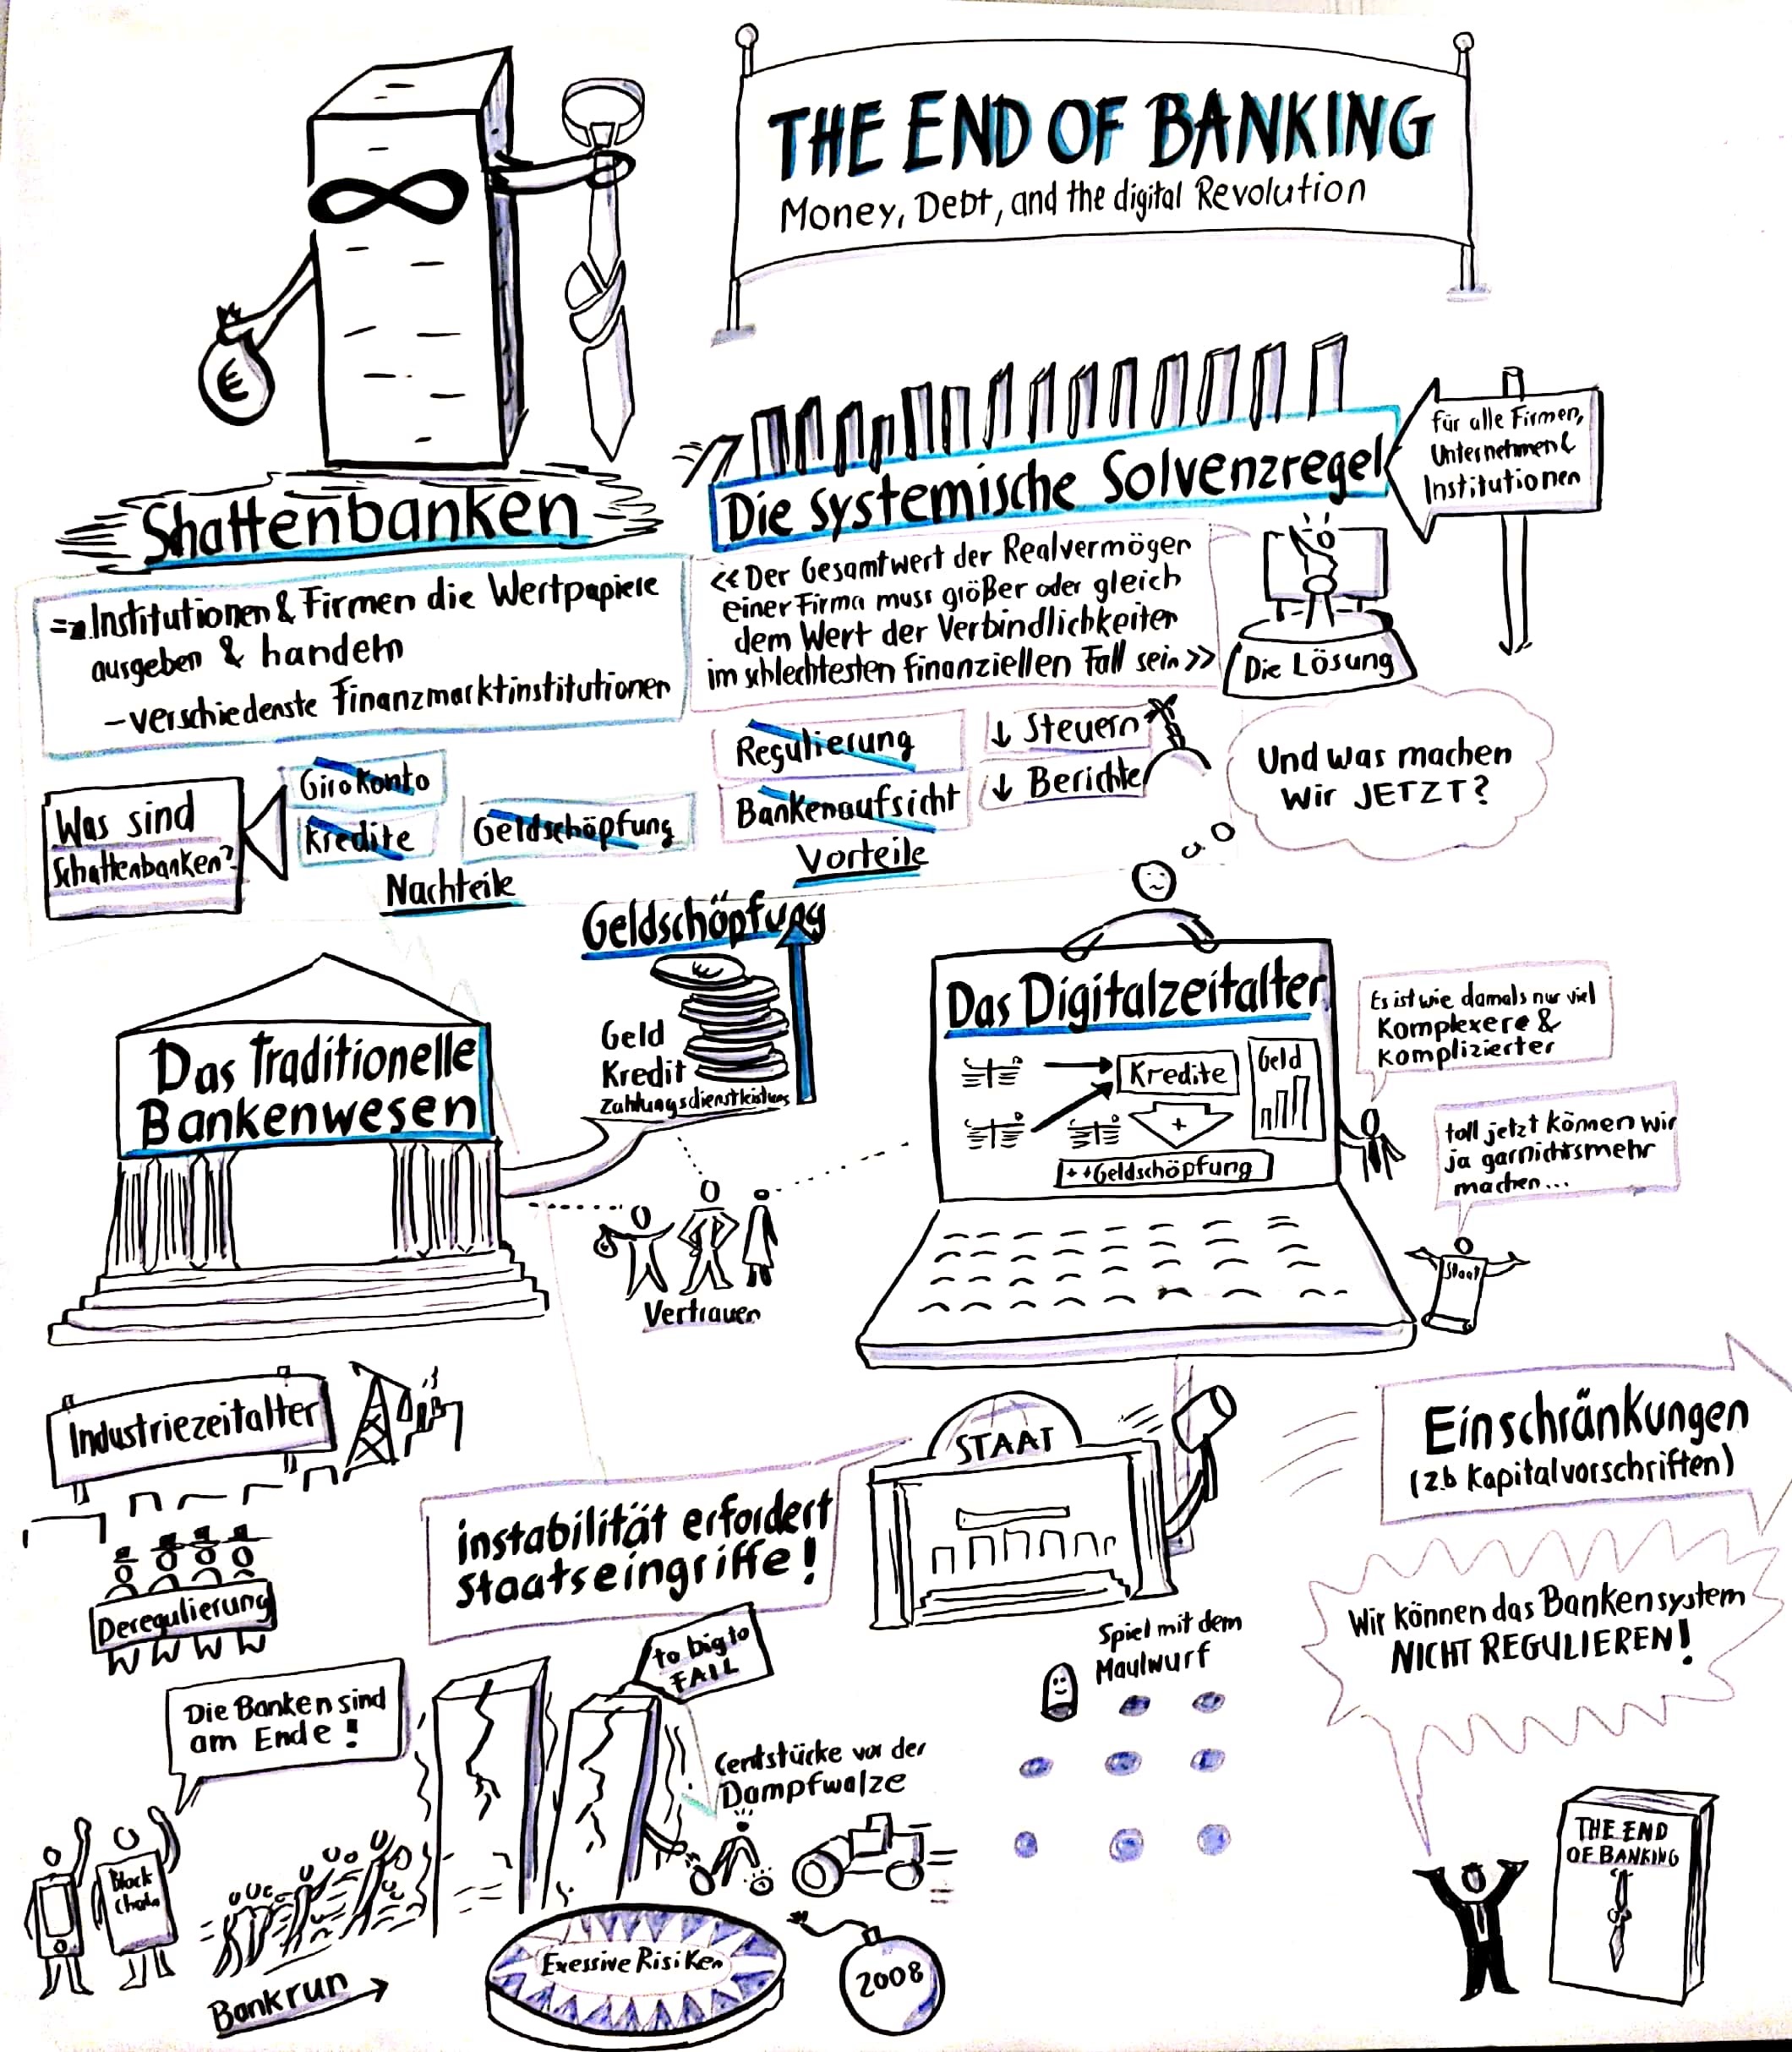 THE END OF BANKING
Money, Debt, and the digital Revolution
€
Shattenbanken
=> Institutionen & Firmen die Wertpapiere
ausgeben & handeln
- verschiedenste Finanzmarktinstitutionen
Was sind
Schattenbanken?
Girokonto
Kredite
Geldschöpfung
Nachteile
Regulierung
Bankenaufsicht
Vorteile
↓ Steuern
↓ Berichte
Die systemische Solvenzregel
für alle Firmen,
Unternehmen &
Institutionen
<< Der Gesamtwert der Realvermögen
einer Firma muss größer oder gleich
dem Wert der Verbindlichkeiten
im schlechtesten finanziellen Fall sein >>
Die Lösung
Und was machen
Wir JETZT?
Das Traditionelle
Bankenwesen
Geldschöpfung
€
Geld
Kredit
Zahlungsdienstleistung
Vertrauen
Das Digitalzeitalter
Kredite
Geld
+
++Geldschöpfung
Es ist wie damals nur viel
Komplexere &
Komplizierter
toll jetzt können wir
ja garnichtsmehr
machen...
Staat
Industriezeitalter
Deregulierung
instabilität erfordert
Staatseingriffe!
STAAT
Einschränkungen
(z.b Kapitalvorschriften)
Wir können das Bankensystem
NICHT REGULIEREN!
Spiel mit dem
Maulwurf
Die Banken sind
am Ende!
to big to
FAIL
Centstücke vor der
Dampfwalze
Block
Chain
Bankrun
Exessive Risiken
2008
THE END
OF BANKING